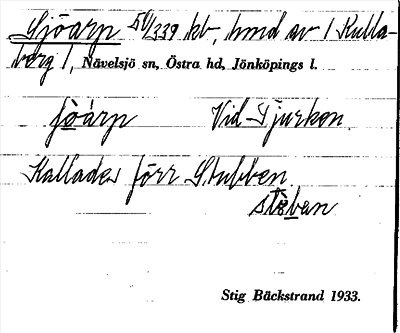 Sjöarp 50/339 kb, hmd av 1 Kulla-
berg 1, Nävelsjö sn, Östra hd, Jönköpings l.
ʃòárp Vid Tjurken.
Kallades förr Stubben
stɐ̀ban
Stig Bäckstrand 1933.